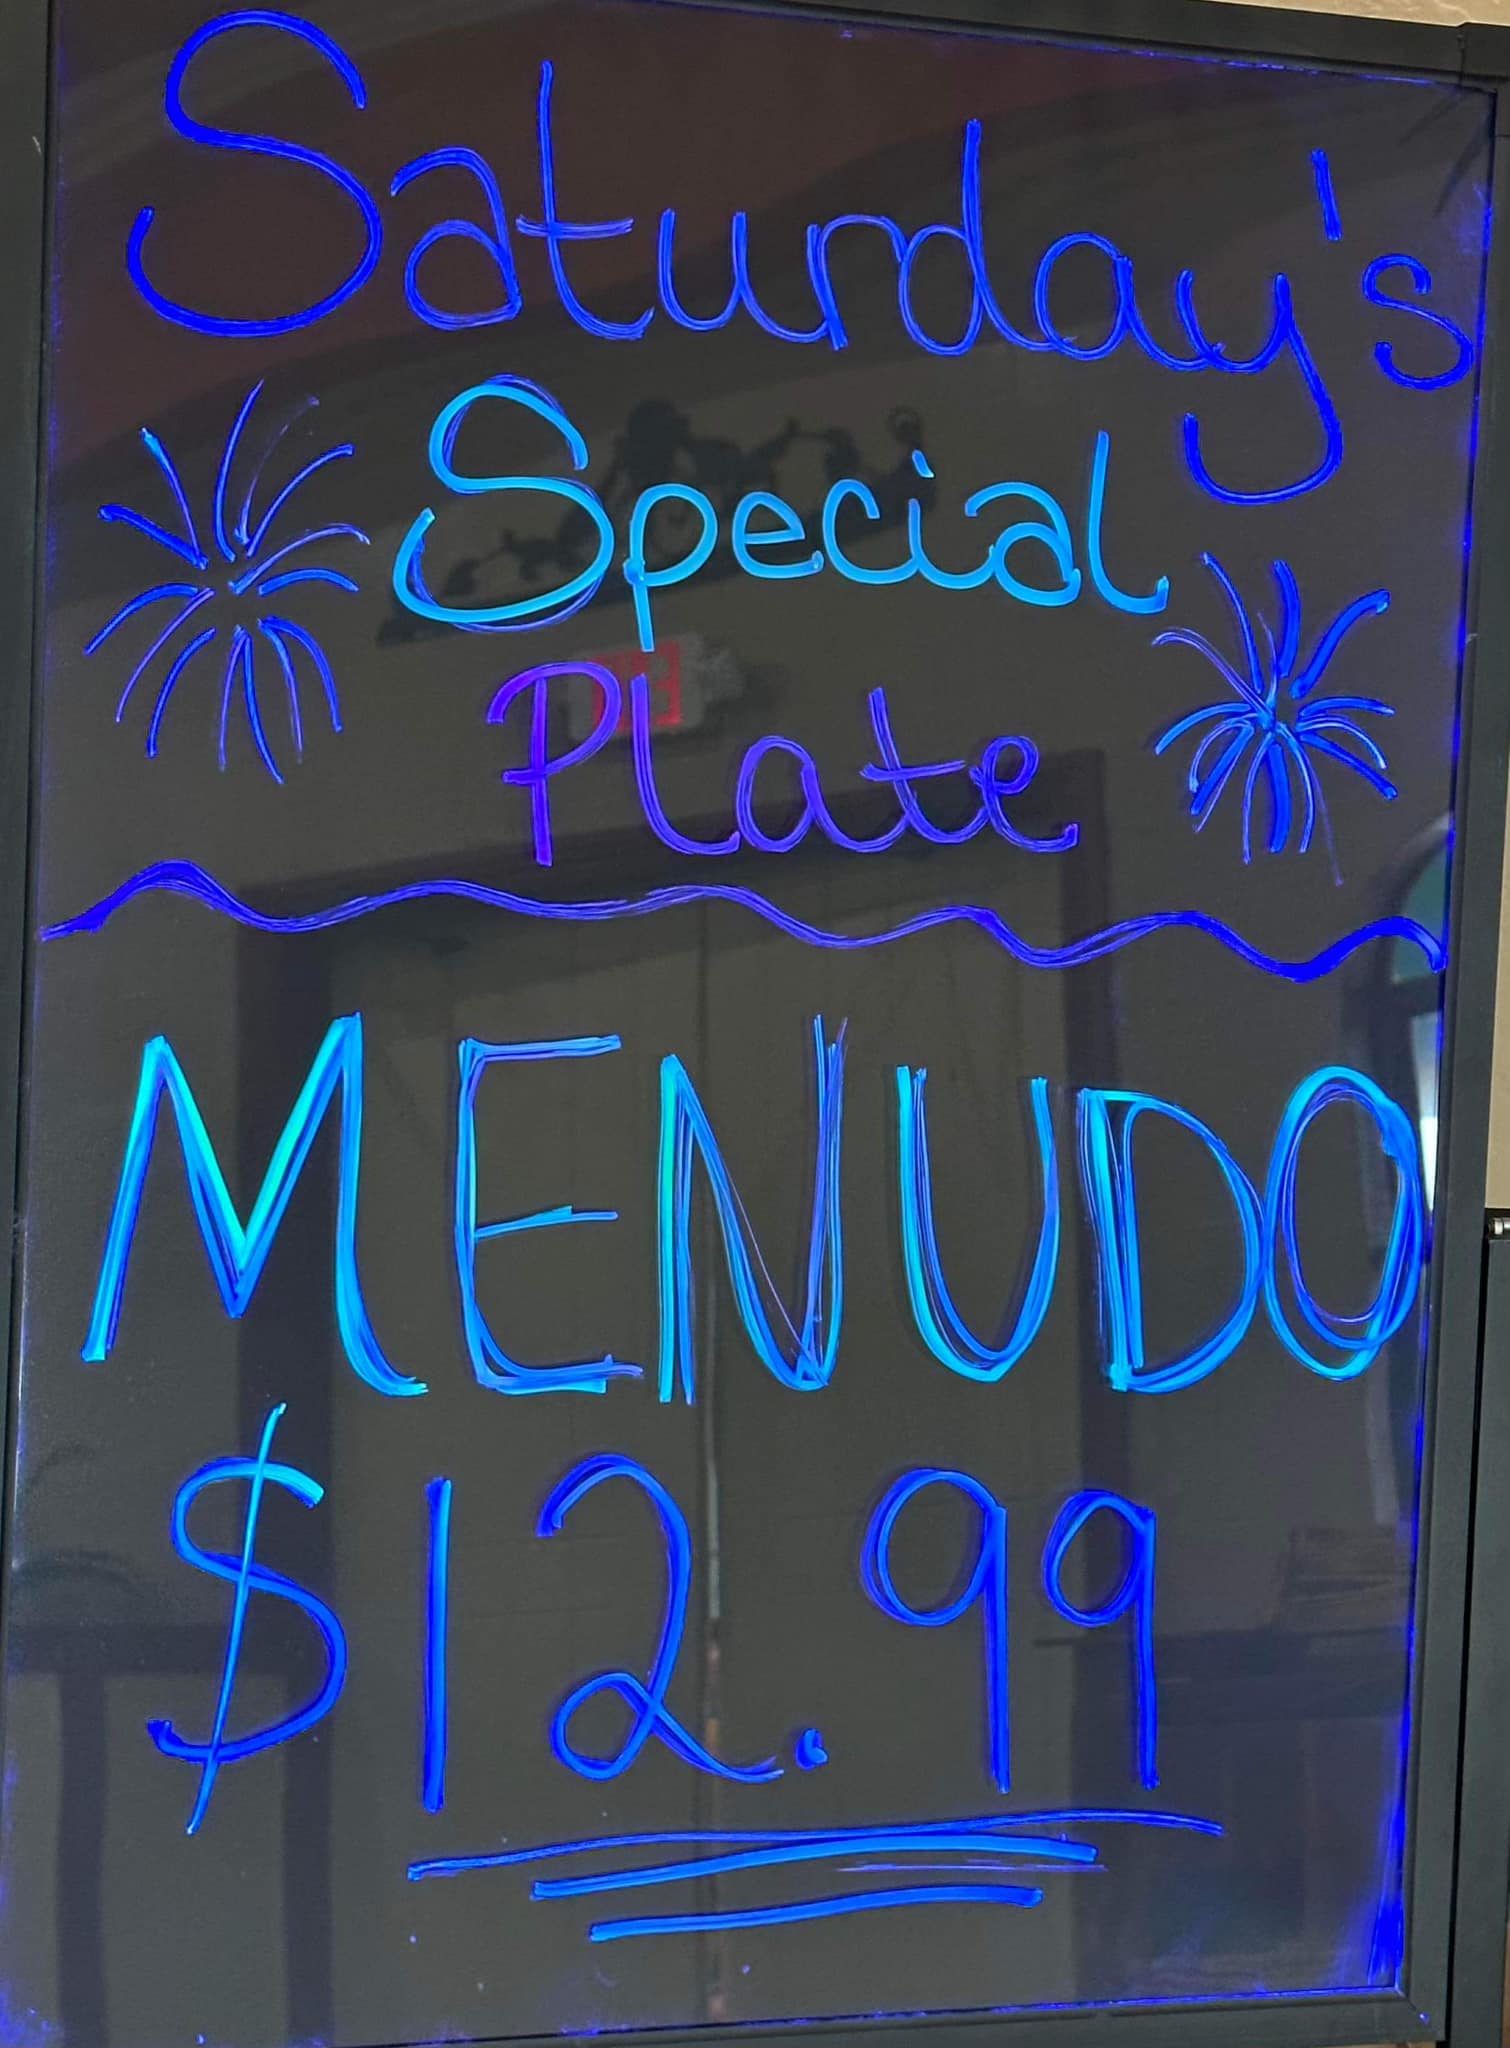 Saturday's
Special
Plate
MENUDO
$12.99